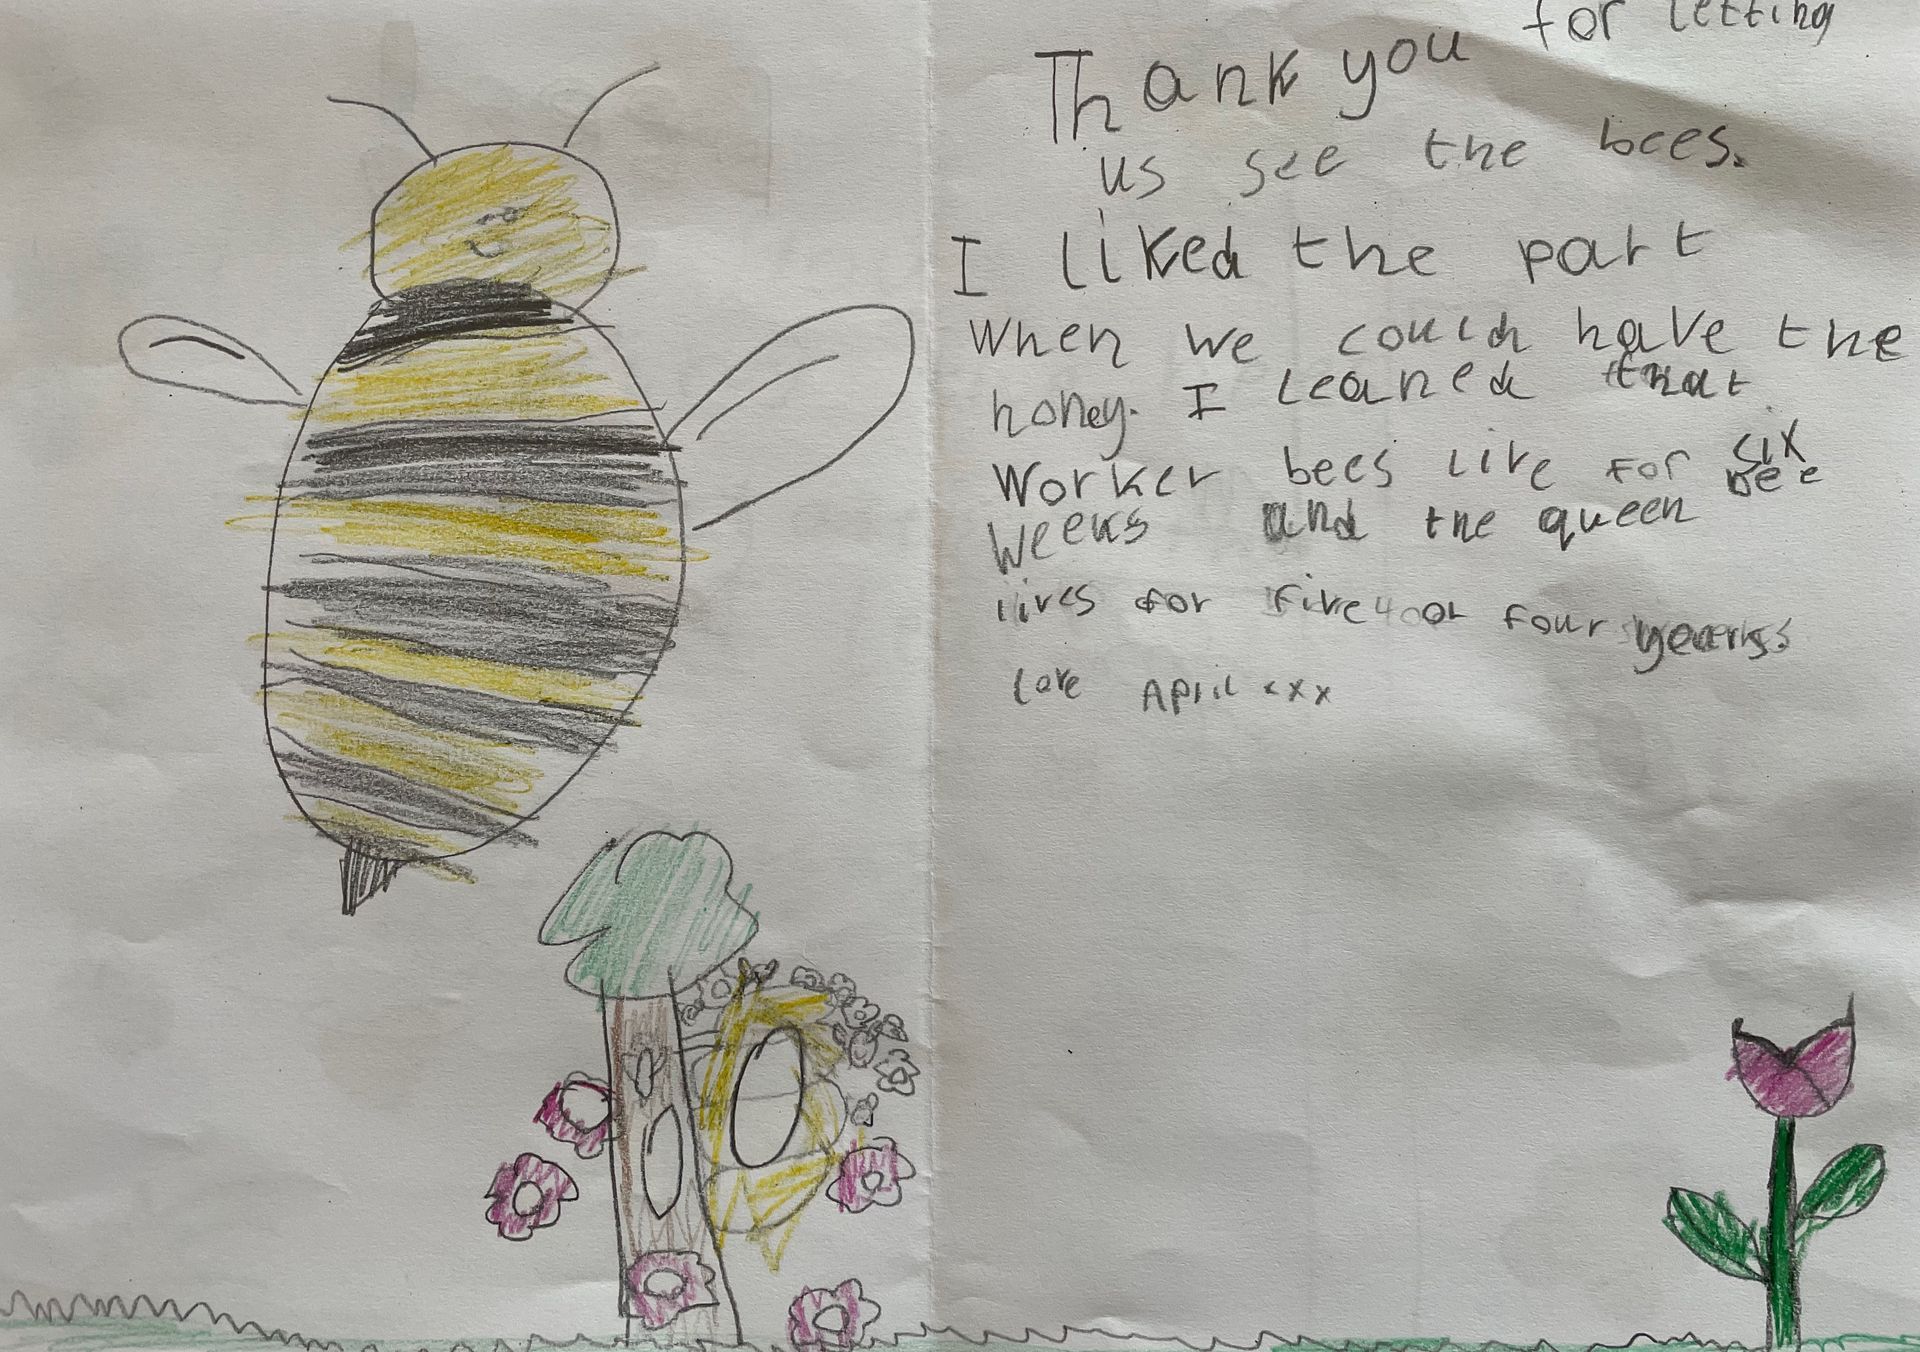 Thank you for letting
us see the bees.
I liked the part
When we could have the
honey. I leaned that
Worker bees live for six
weeks and the queen bee
lives for five or four years.
love April xxx